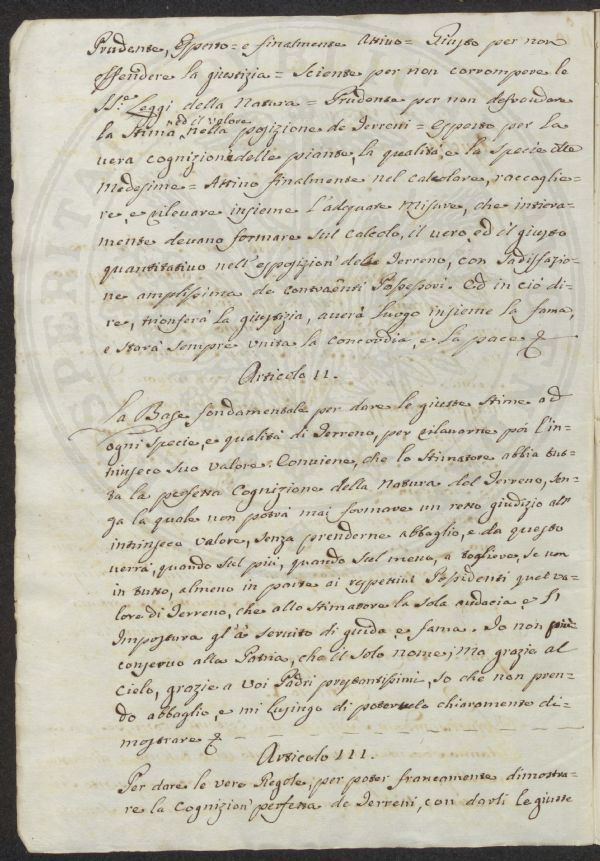 Prudente, Esperto = e finalmente Attivo = Giusto per non
offendere la giustizia = Sciente per non corrompere le
SS.e Leggi della Natura = Prudente per non defraudare
ed il valore
la Stima nella posizione de Terreni = Esperto per la
vera cognizione delle piante, la qualità, e la specie delle
medesime = Attivo finalmente nel calcolare, raccoglie=
re, e rilevare insieme l'adequate Misure, che intiera=
mente devano formare sul calcolo, il vero, ed il giusto
quantitativo nell'esposizion' del Terreno, con sadisfazio=
ne amplissima de contraenti Possessori. Ed in ciò di=
re, trionferà la giustizia, averà luogo insieme la fama,
e starà sempre unita la concordia, e la pace
Articolo II.
La Base fondamentale per dare le giuste stime ad
ogni specie, e qualità di Terreno, per rilevarne poi l'in=
trinseco suo valore. Conviene, che lo Stimatore abbia tut=
ta la perfetta Cognizione della Natura del Terreno, sen=
za la quale non potrà mai formare un retto giudizio all'
intrinseco valore, senza prenderne abbaglio, e da questo
verrà, quando sul più, quando sul meno, a togliere, se non
in tutto, almeno in parte ai respettivi Possidenti quel va=
lore di Terreno, che allo stimatore la sola audacia, e l'
Impostura gl'à servito di guida, e fama. Io non
conservo alla Patria, che il solo nome; Ma grazie al
Cielo, grazie a Voi Padri prestantissimi, so che non pren=
do abbaglio, e mi lusingo di poterlo chiaramente di=
mostrare
Articolo III.
Per dare le vere Regole, per poter francamente dimostra=
re la Cognizion' perfetta de Terreni, con darli le giuste
SPERITA